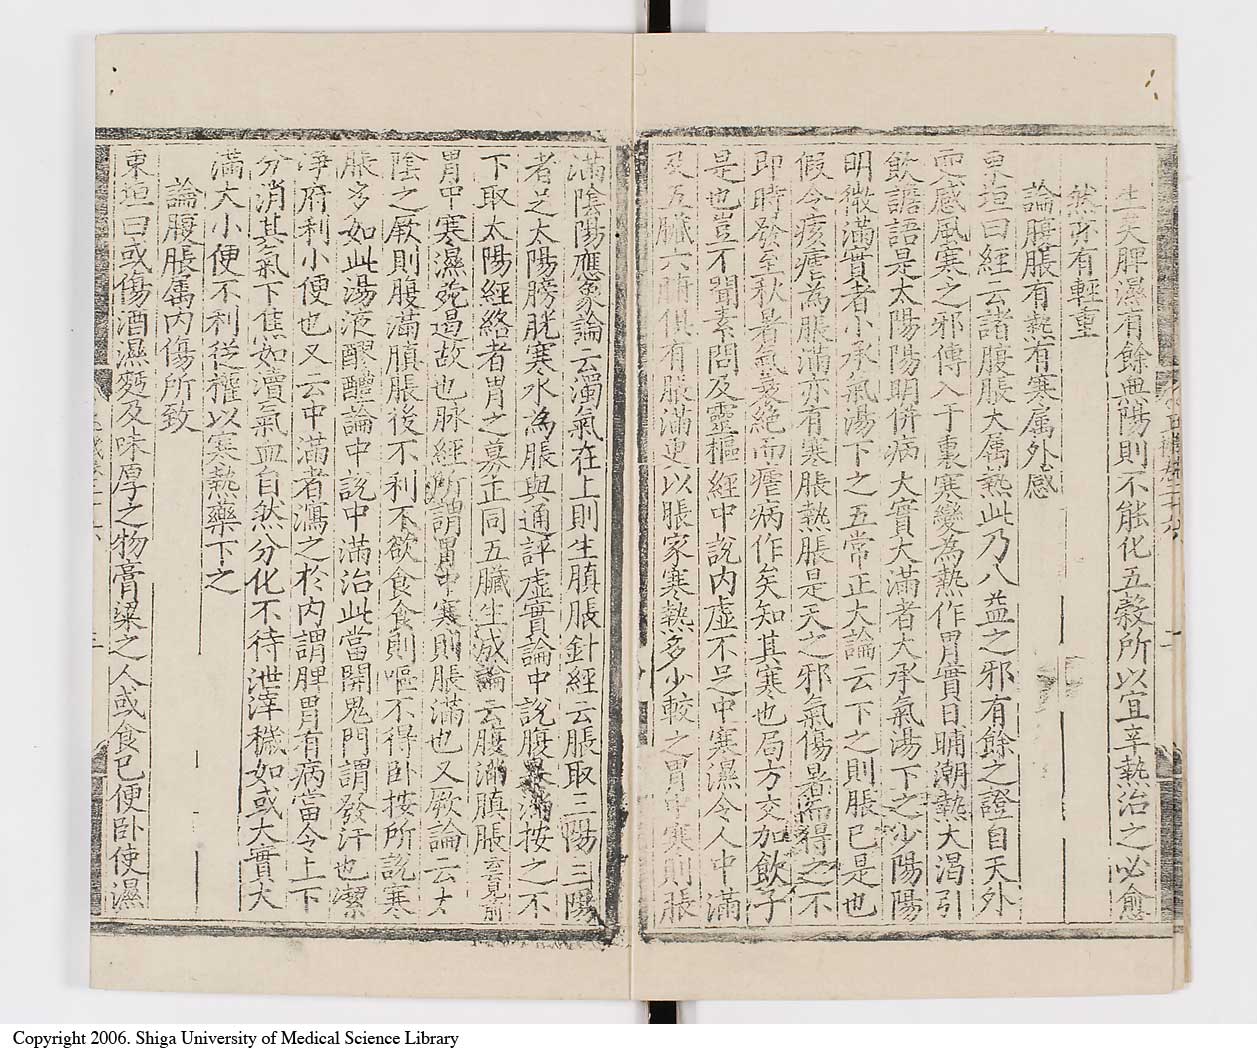 生矣脾濕有餘無陽則不能化五穀所以宜辛熱治之必愈
然亦有輕重
論腹脹有熱有寒属外感
東垣曰經云諸腹脹大属熱此乃八益之邪有餘之證自天外
而感風寒之邪傳入于裏寒變為熱作胃實日晡潮熱大渴引
飲譫語是太陽陽明併病大實大滿者大承氣湯下之少陽陽
明微滿實者小承氣湯下之五常正大論云下之則脹已是也
假令痎瘧為脹滿亦有寒脹熱脹是天之邪氣傷暑而得之不
即時發至秋暑氣衰絶而瘧病作矣知其寒也局方交加飲子
是也豈不聞素問及靈樞經中說内虛不足中寒濕令人中滿
及五臓六腑俱有脹滿更以脹家寒熱多少較之胃中寒則脹
滿陰陽應象論云濁氣在上則生䐜脹針經云脹取三陽三陽
者足太陽膀胱寒水為脹與通評虛實論中說腹暴滿按之不
下取太陽經絡者胃之募正同五臓生成論云腹滿䐜脹云云見前
胃中寒濕菀遏故也脉經所謂胃中寒則脹滿也又厥論云太
陰之厥則腹滿䐜脹後不利不欲食食則嘔不得卧按所說寒
脹多如此湯液醪醴論中說中滿治此當開鬼門謂發汗也潔
淨府利小便也又云中滿者瀉之於内謂脾胃有病當令上下
分消其氣下焦如瀆氣血自然分化不待泄滓穢如或大實大
滿大小便不利從權以寒熱藥下之
論腹脹属内傷所致
東垣曰或傷酒濕麪及味厚之物膏粱之人或食已便卧使濕